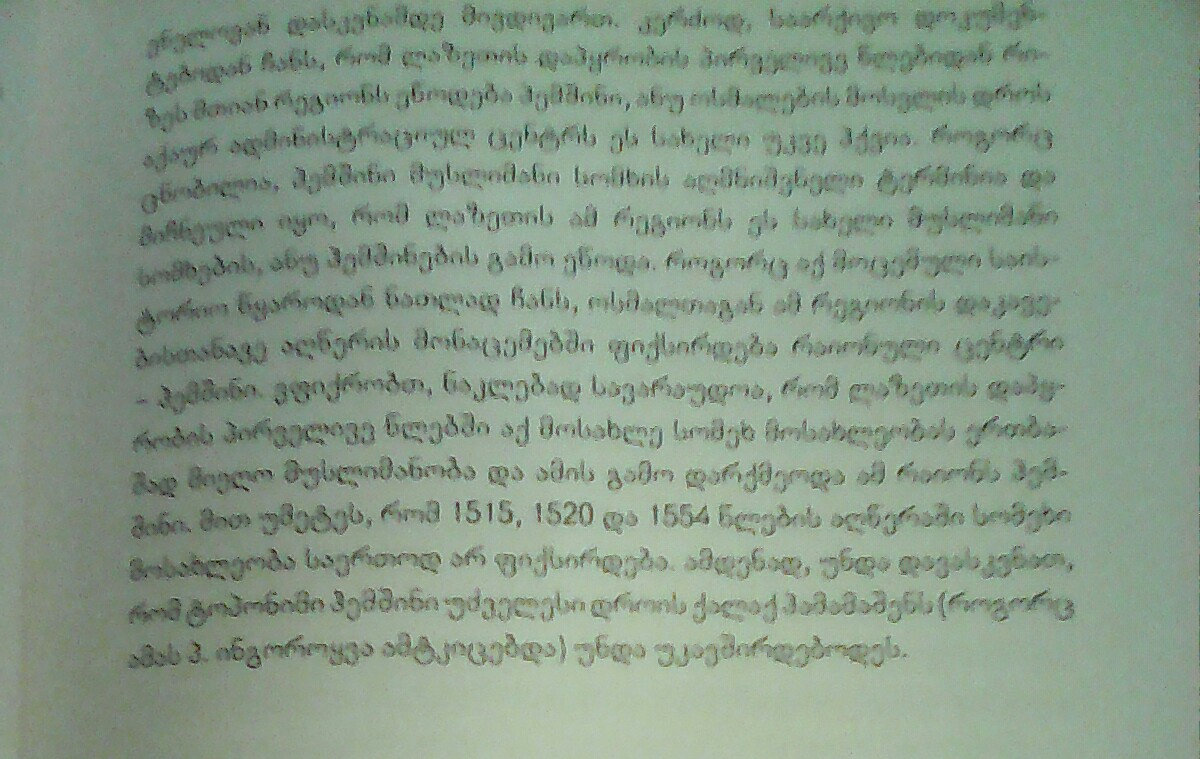 ვნელოვან დასკვნამდე მივდივართ. კერძოდ, საარქივო დოკუმენ-
ტებიდან ჩანს, რომ ლაზეთის დაპყრობის პირველივე წლებიდან რი-
ზეს მთიან რეგიონს ეწოდება ჰემშინი, ანუ ოსმალების მოსვლის დროს
აქაურ ადმინისტრაციულ ცენტრს ეს სახელი უკვე ჰქვია. როგორც
ცნობილია, ჰემშინი მუსლიმანი სომხის აღმნიშვნელი ტერმინია და
მიჩნეული იყო, რომ ლაზეთის ამ რეგიონს ეს სახელი მუსლიმანი
სომხების, ანუ ჰემშინების გამო ეწოდა. როგორც აქ მოცემული საის-
ტორიო წყაროდან ნათლად ჩანს, ოსმალთაგან ამ რეგიონის დაკავე-
ბისთანავე აღწერის მონაცემებში ფიქსირდება რაიონული ცენტრი
– ჰემშინი. ვფიქრობთ, ნაკლებად სავარაუდოა, რომ ლაზეთის დაპყ-
რობის პირველივე წლებში აქ მოსახლე სომეხ მოსახლეობას ერთბა-
შად მიეღო მუსლიმანობა და ამის გამო დარქმეოდა ამ რაიონს ჰემ-
შინი. მით უმეტეს, რომ 1515, 1520 და 1554 წლების აღწერაში სომეხი
მოსახლეობა საერთოდ არ ფიქსირდება. ამდენად, უნდა დავასკვნათ,
რომ ტოპონიმი ჰემშინი უძველესი დროის ქალაქ ჰამამაშენს (როგორც
ამას პ. ინგოროყვა ამტკიცებდა) უნდა უკავშირდებოდეს.